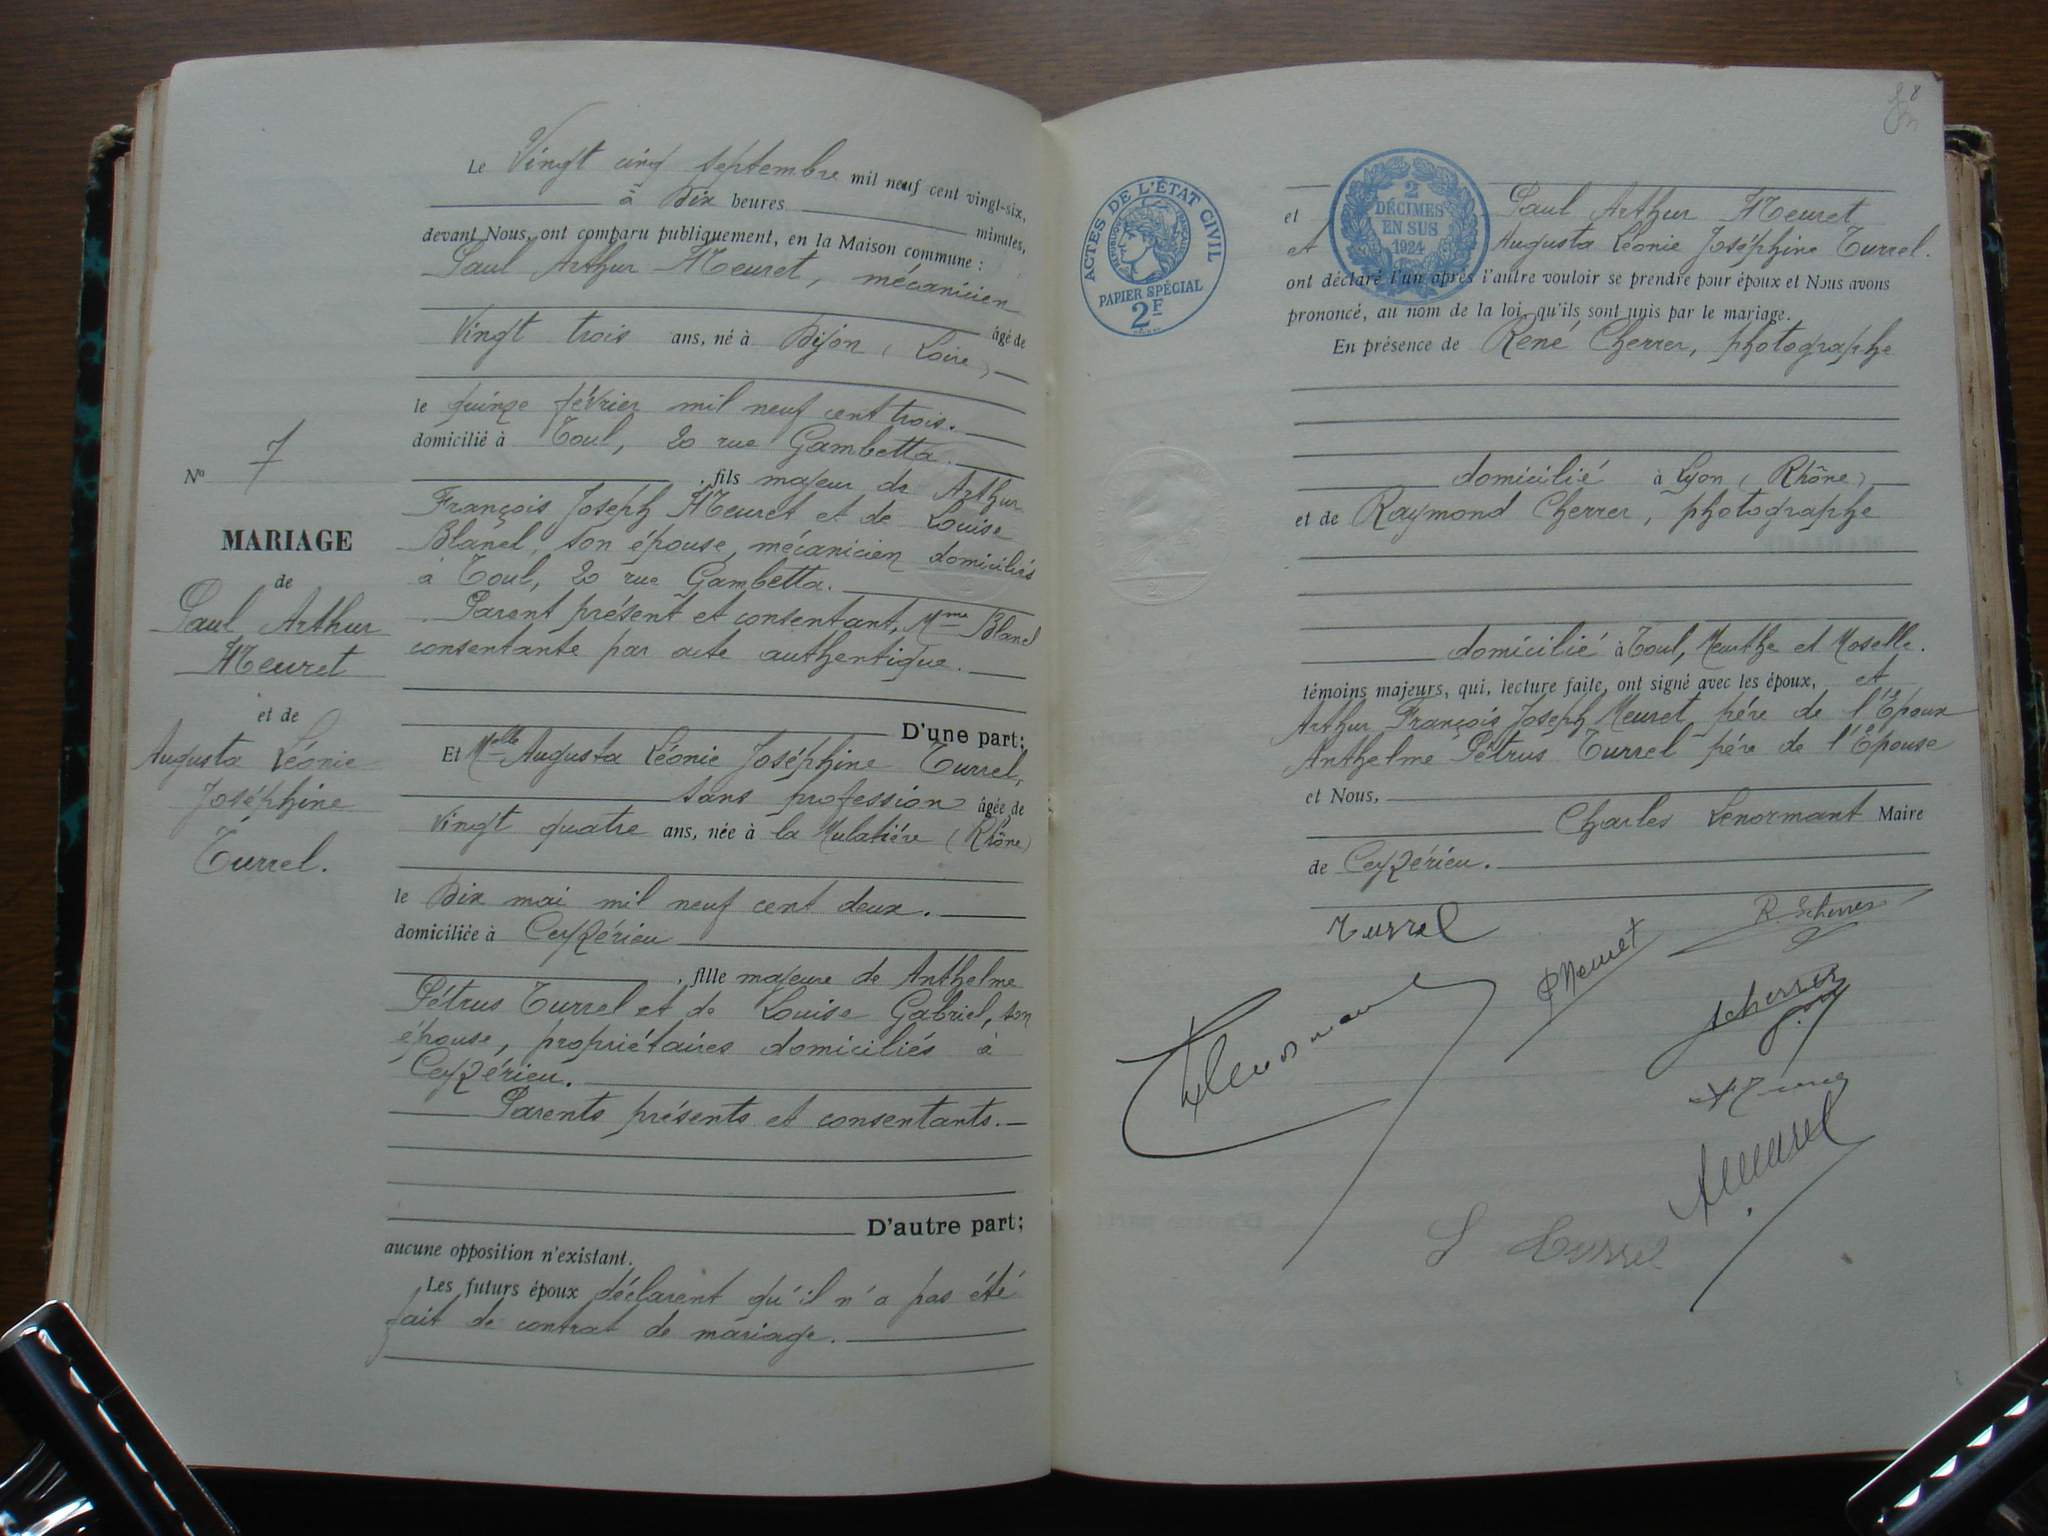 Le Vingt cinq septembre mil neuf cent vingt-six,
à Dix heures minutes,
devant Nous, ont comparu publiquement, en la Maison commune :
Paul Arthur Meuret, mécanicien
âgé de
Vingt trois ans, né à Dijon (Loire)
le quinze février mil neuf cent trois.
domicilié à Toul, 20 rue Gambetta.
, fils majeur de Arthur
François Joseph Meuret et de Louise
Blanel, son épouse, mécanicien domiciliés
à Toul, 20 rue Gambetta.
Parent présent et consentant, Mme Blanel
consentante par acte authentique.
D'une part;
Et Melle Augusta Léonie Joséphine Turrel,
sans profession âgée de
Vingt quatre ans, née à la Mulatière (Rhône)
le Dix mai mil neuf cent deux.
domiciliée à Ceyzérieu
, fille majeure de Anthelme
Pétrus Turrel et de Louise Gabriel, son
épouse, propriétaires domiciliés à
Ceyzérieu.
Parents présents et consentants.
D'autre part;
aucune opposition n'existant.
Les futurs époux déclarent qu'il n'a pas été
fait de contrat de mariage.
No 7
MARIAGE
de
Paul Arthur
Meuret
et de
Augusta Léonie
Joséphine
Turrel.
8
ACTES DE L'ÉTAT CIVIL
PAPIER SPÉCIAL
2F
2
DÉCIMES
EN SUS
1924
et Paul Arthur Meuret
et Augusta Léonie Joséphine Turrel.
ont déclaré l'un après l'autre vouloir se prendre pour époux et Nous avons
prononcé, au nom de la loi, qu'ils sont unis par le mariage.
En présence de René Cherrer, photographe
domicilié à Lyon (Rhône)
et de Raymond Cherrer, photographe
domicilié à Toul, Meurthe et Moselle.
témoins majeurs, qui, lecture faite, ont signé avec les époux, et
Arthur François Joseph Meuret père de l'Époux
Anthelme Pétrus Turrel père de l'Épouse
et Nous,
Charles Lenormant Maire
de Ceyzérieu.
Turrel
R. Scherrer
P Meuret
Scherrer
Lenormant
A Meuret
L Turrel